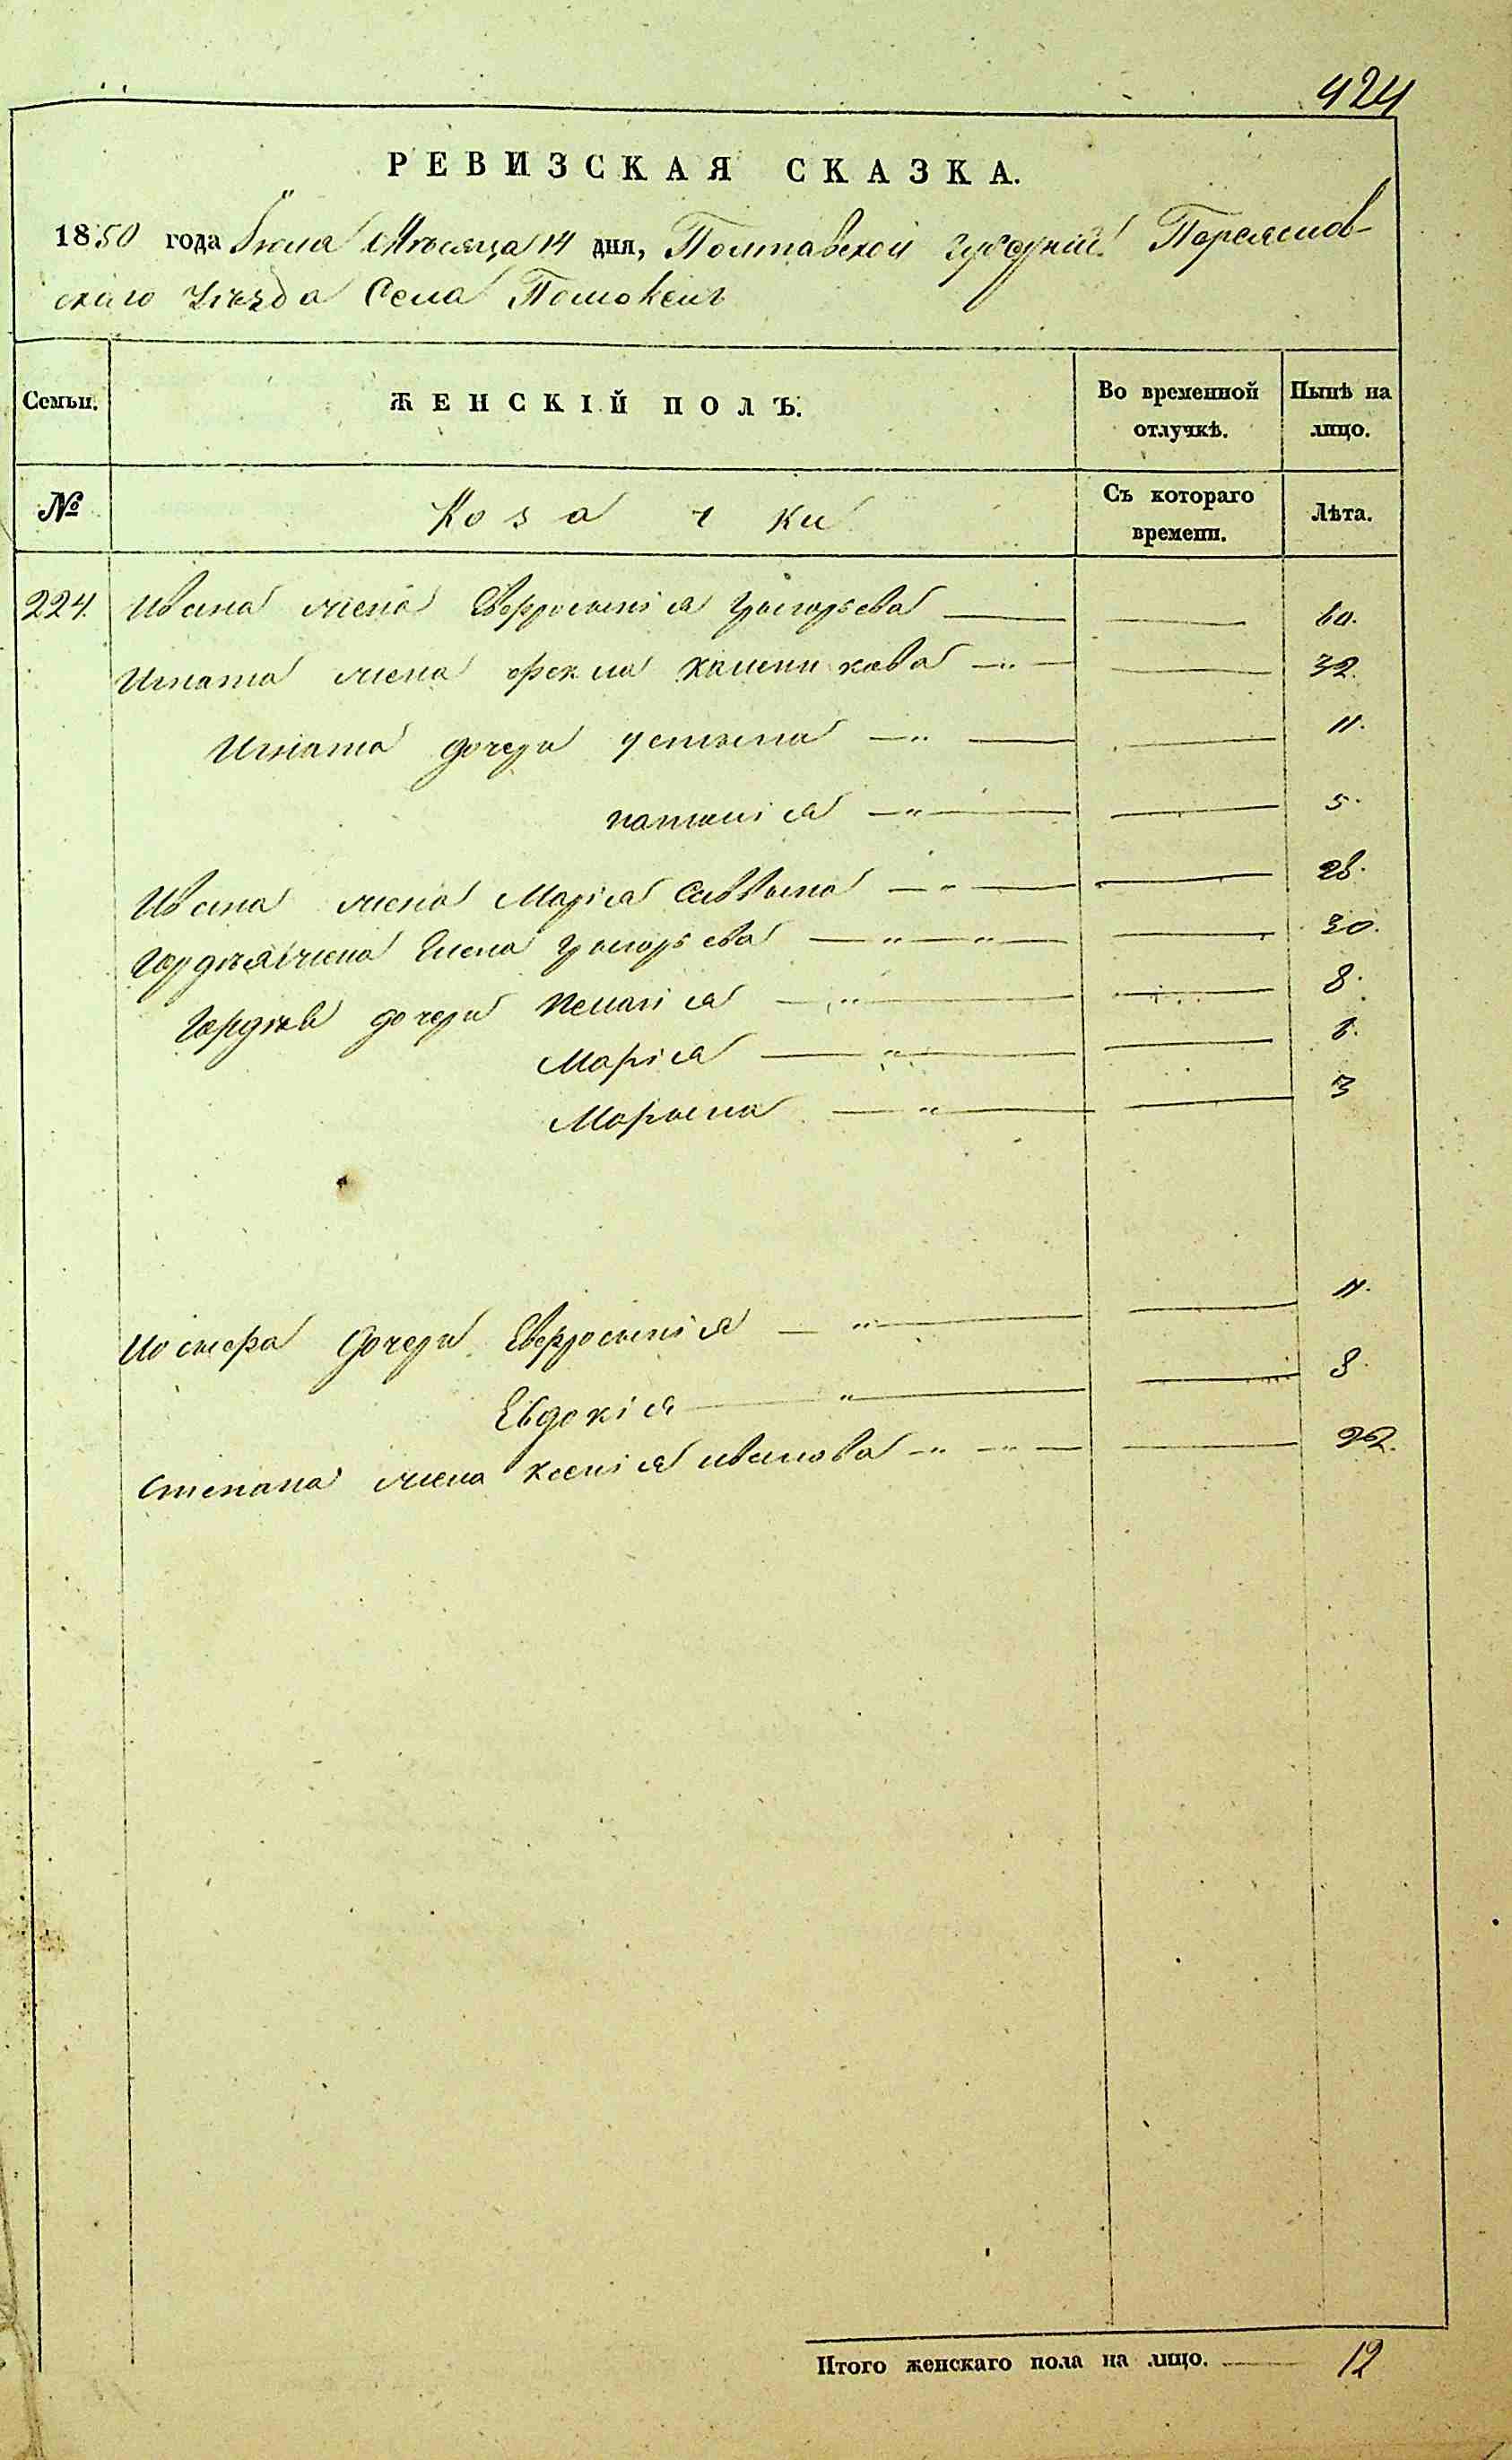 424
РЕВИЗСКАЯ СКАЗКА.
1850 года Іюля Мѣсяца 14 дня, Полтавской Губерніи Переяслов-
скаго Уѣзда Села Помоклей
Семьи. ЖЕНСКІЙ ПОЛЪ. Во временной отлучкѣ. Нынѣ на лицо.
№ Козачки Съ котораго времени. Лѣта.
224. Ивана жена Евфросинія Григорьева 60.
Игната жена Фекла Калениковa 32.
Игната дочери Устина 11.
Наталія 5.
Ивана жена Марія Саввина 28.
Гордѣя жена Елена Григорьева 30.
Гордѣя дочери Пелагія 8.
Марія 6.
Марина 3
Іосифа дочери Евфросинія 11.
Евдокія 8.
Степана жена Ксенія Иванова 22.
Итого женскаго пола на лицо. 12